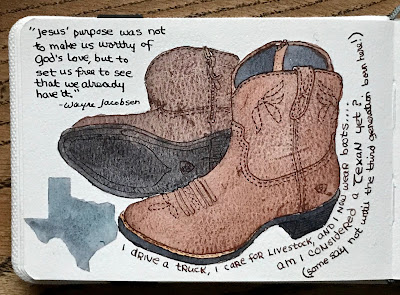 "Jesus' purpose was not
to make us worthy of
God's love, but to
set us free to see
that we already
have it."
-Wayne Jacobsen
I DRIVE A TRUCK, I CARE FOR LIVESTOCK, AND I NOW WEAR BOOTS....
AM I CONSIDERED A TEXAN YET?
(some say not until the third generation born here!)